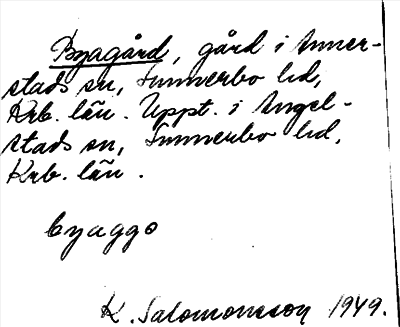 Byagård, gård i Anner-
stads sn, Sunnerbo hd,
Krb. län. Uppt. i Angel-
stads sn, Sunnerbo hd,
Krb. län.
byaggo
K. Salomonsson 1949.